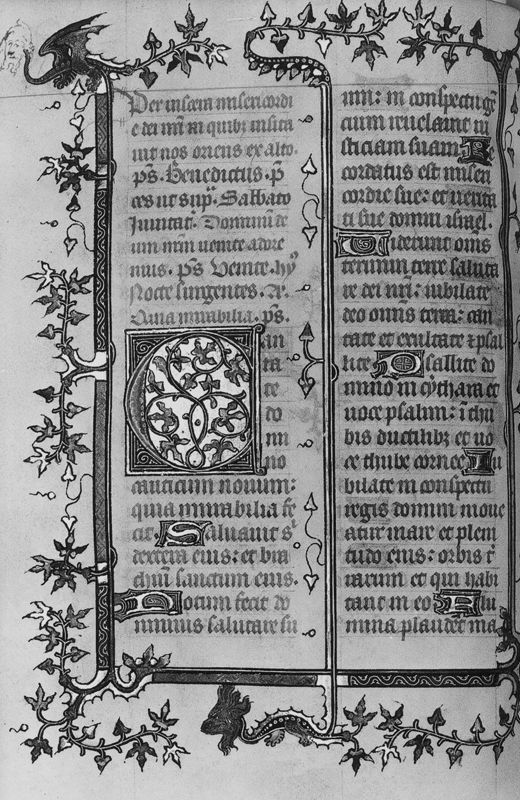 Per uiscera misericordi
e dei nr̄i in quibȝ uisita
uit nos oriens ex alto.
p̄s. Benedictus. p̄
ces ut sup̄. Sabbato
Inuitat̄. Dominū de
um nr̄m uenite adore
mus. p̄s Venite. hȳ
Nocte surgentes. A.
Quia mirabilia. p̄s.
Can
ta
te
do
mi
no
canticum nouum:
quia mirabilia fe
cit. Saluauit s̄
dextera eius: et bra
chiū sanctum eius.
Notum fecit do
minus salutare su
um: in conspectu gē
cium reuelauit iu
sticiam suam. Re
cordatus est miseri
cordie sue: et uerita
ti sue domui israel.
Uiderunt om̄s
termini terre saluta
re dei nr̄i: iubilate
deo omīs terra: can
tate et exultate ⁊ psal
lite. Psallite do
mino in cythara et
uoce psalmi: ī thu
bis ductilibȝ et uo
ce thube cornee. Iu
bilate in conspectu
regis domini moue
atur mare et pleni
tudo eius: orbis t̄
rarum et qui habi
tant in eo. Flu
mina plaudēt ma